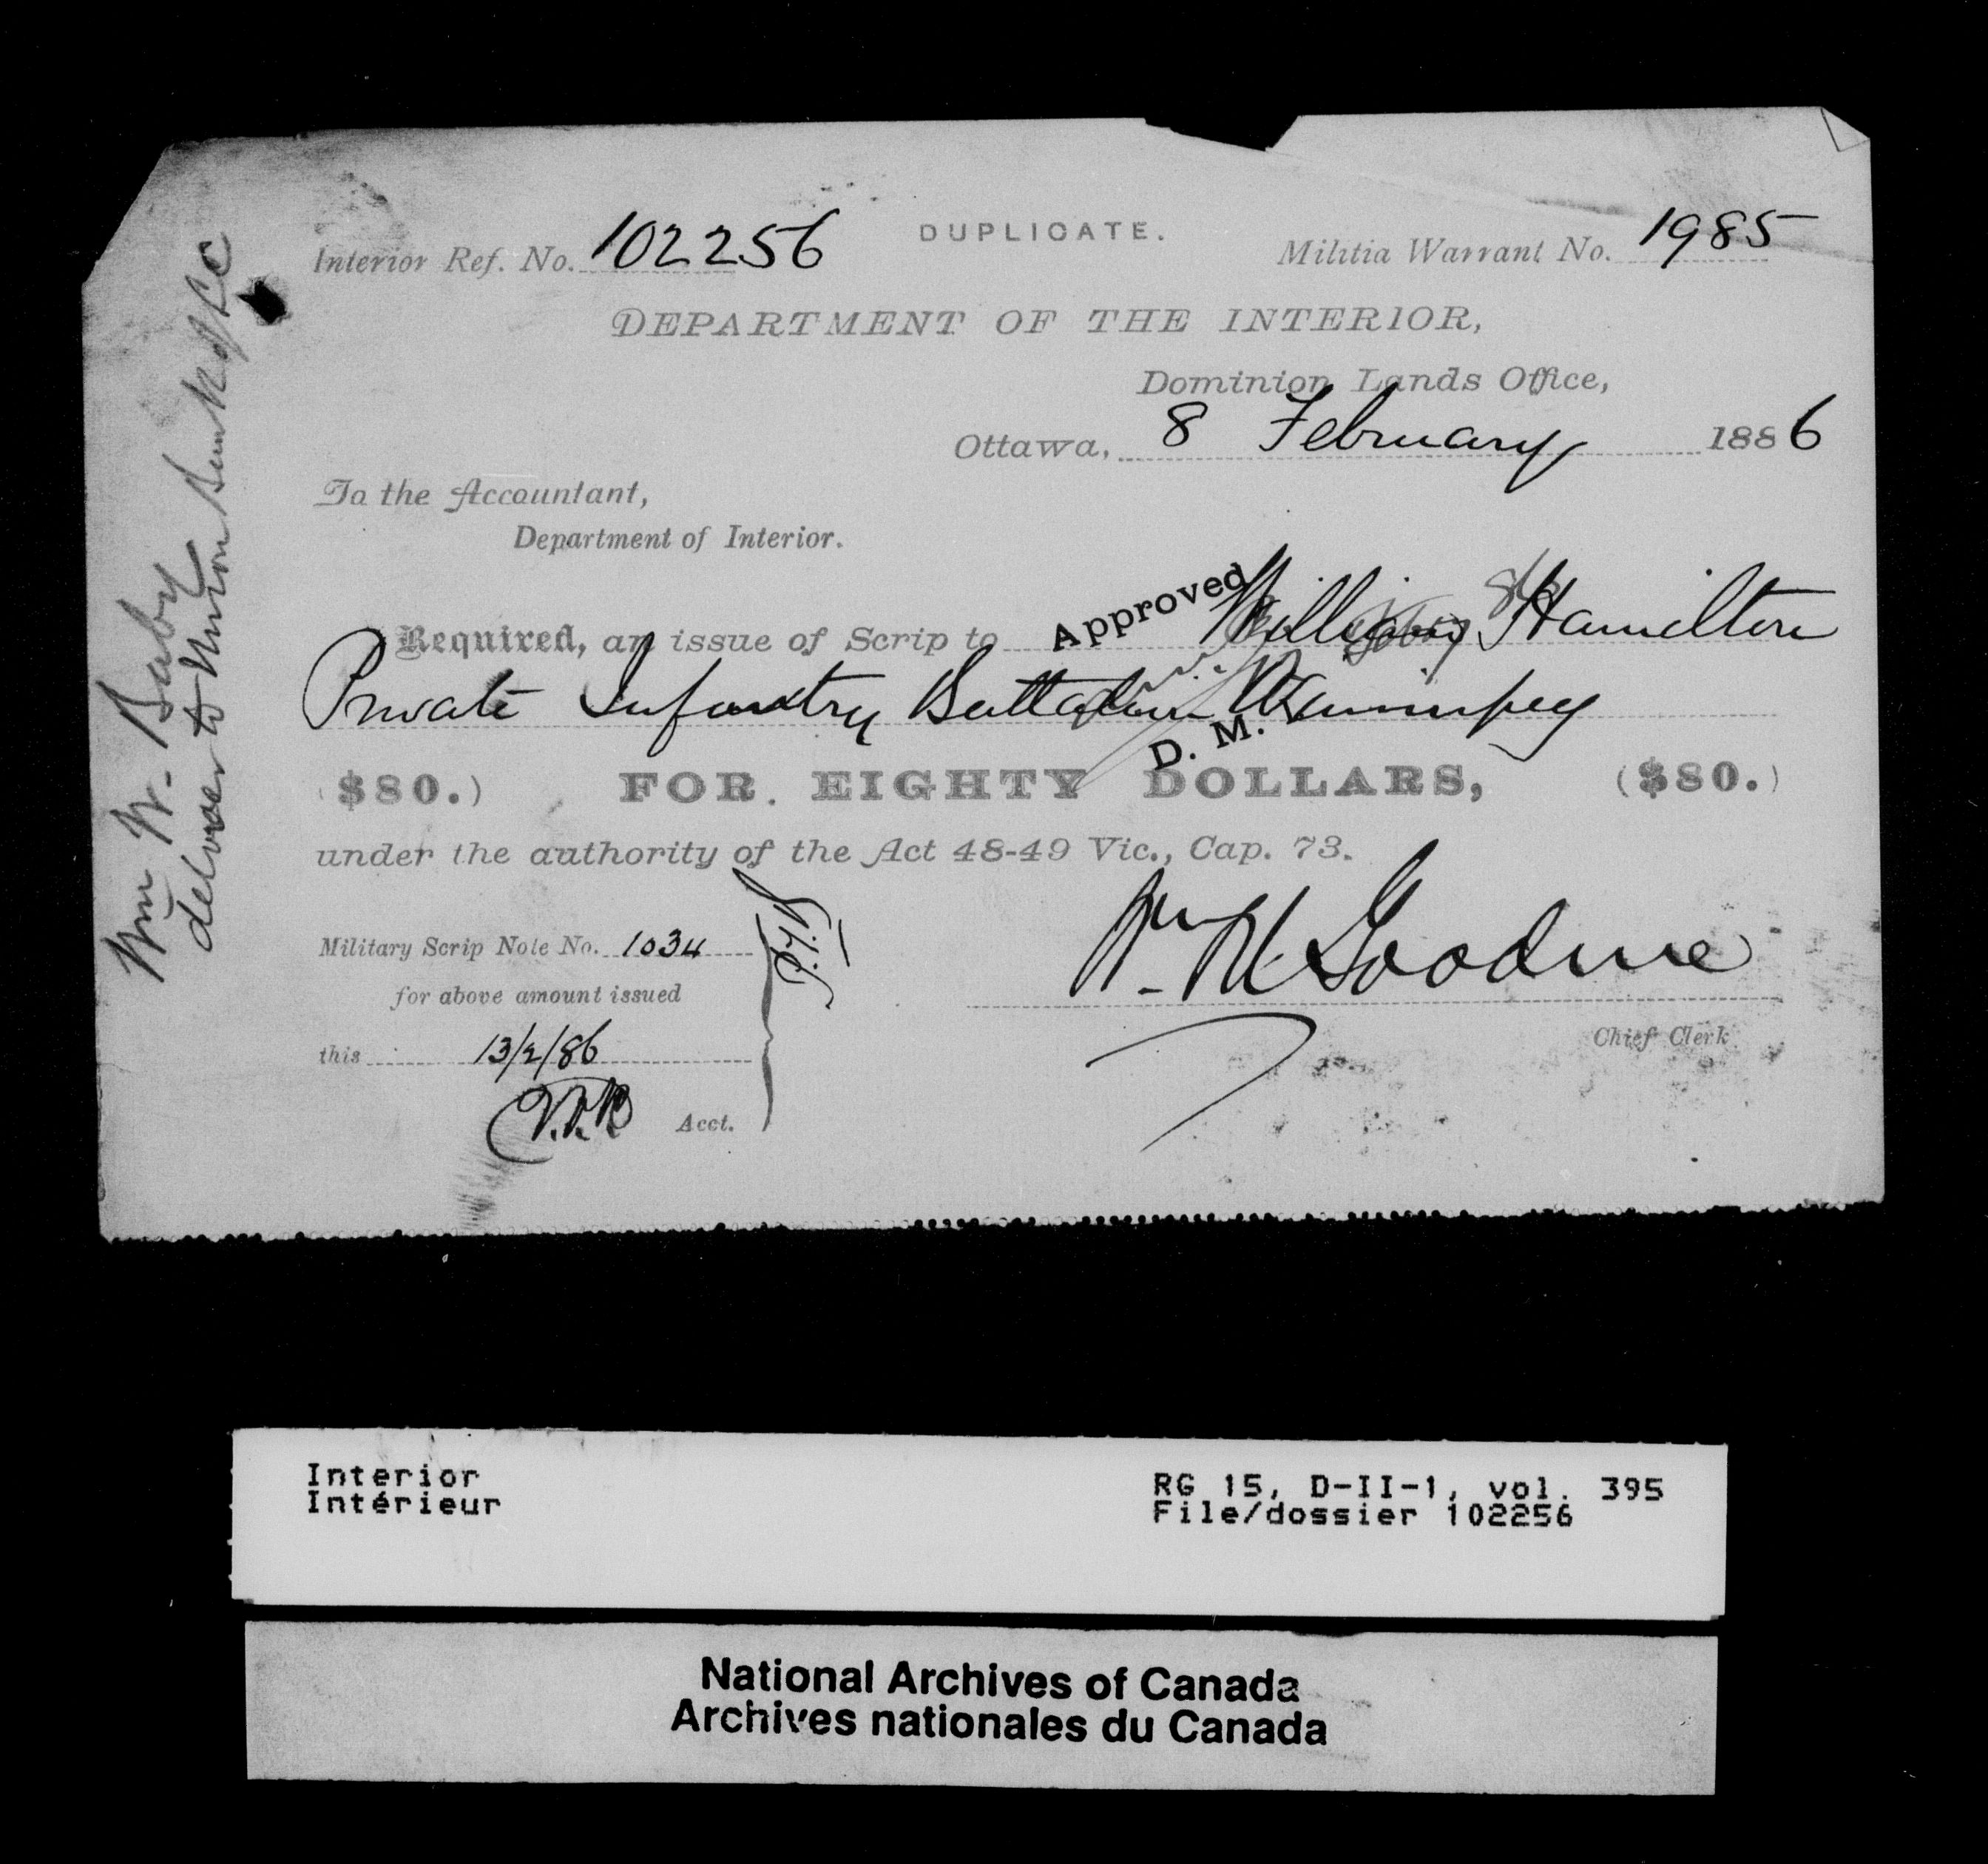 Interior Ref. No. 102256 DUPLICATE. Militia Warrant No. 1985
DEPARTMENT OF THE INTERIOR,
Dominion Lands Office,
Ottawa, 8 February 1886
To the Accountant,
Department of Interior.
Approved
Required, an issue of Scrip to William Hamilton
Private Infantry Battalion Winnipeg
D. M.
($80.) FOR EIGHTY DOLLARS, ($80.)
under the authority of the Act 48-49 Vic., Cap. 73.
Military Scrip Note No. 1034
for above amount issued
this 13/2/86
Acct.
Wm M Goodine
Chief Clerk
Wm W. Buby
deliver to Union Bank of LC
Interior
Intérieur
RG 15, D-II-1, vol. 395
File/dossier 102256
National Archives of Canada
Archives nationales du Canada